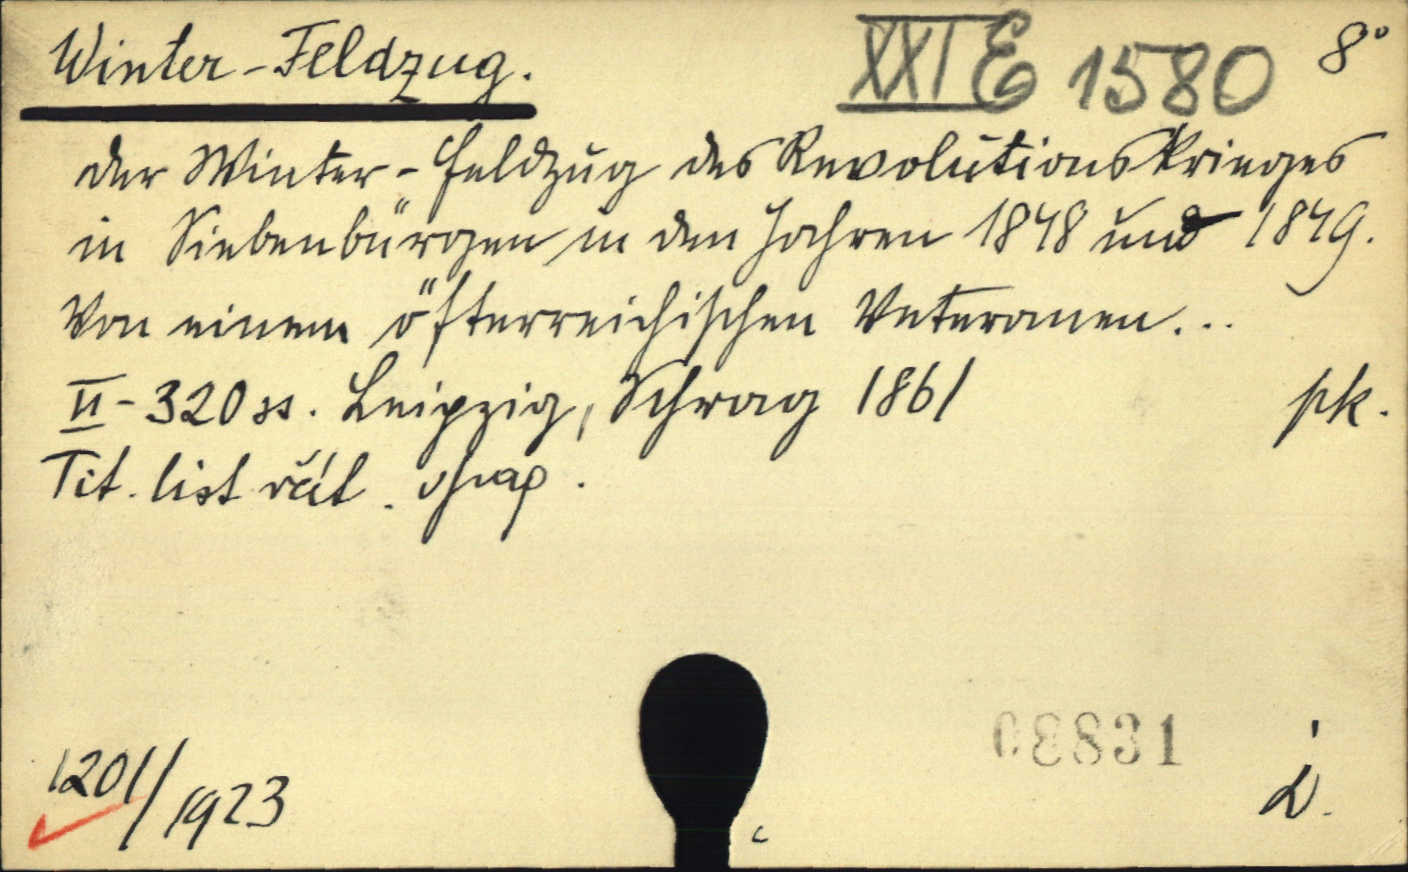 Winter-Feldzug.
XXI E 1580
8°
Der Winter-Feldzug des Revolutionskrieges
in Siebenbürgen in den Jahren 1848 und 1849.
Von einem österreichischen Veteranen...
II-320 ss. Leipzig, Schrag 1861
pk.
Tit. list
1201/1923
08831